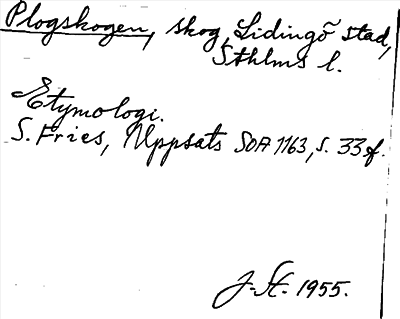 Plogskogen, skog, Lidingö stad,
Sthlms l.
Etymologi.
S. Fries, Uppsats SOA 1163, s. 33 f.
J. St. 1955.